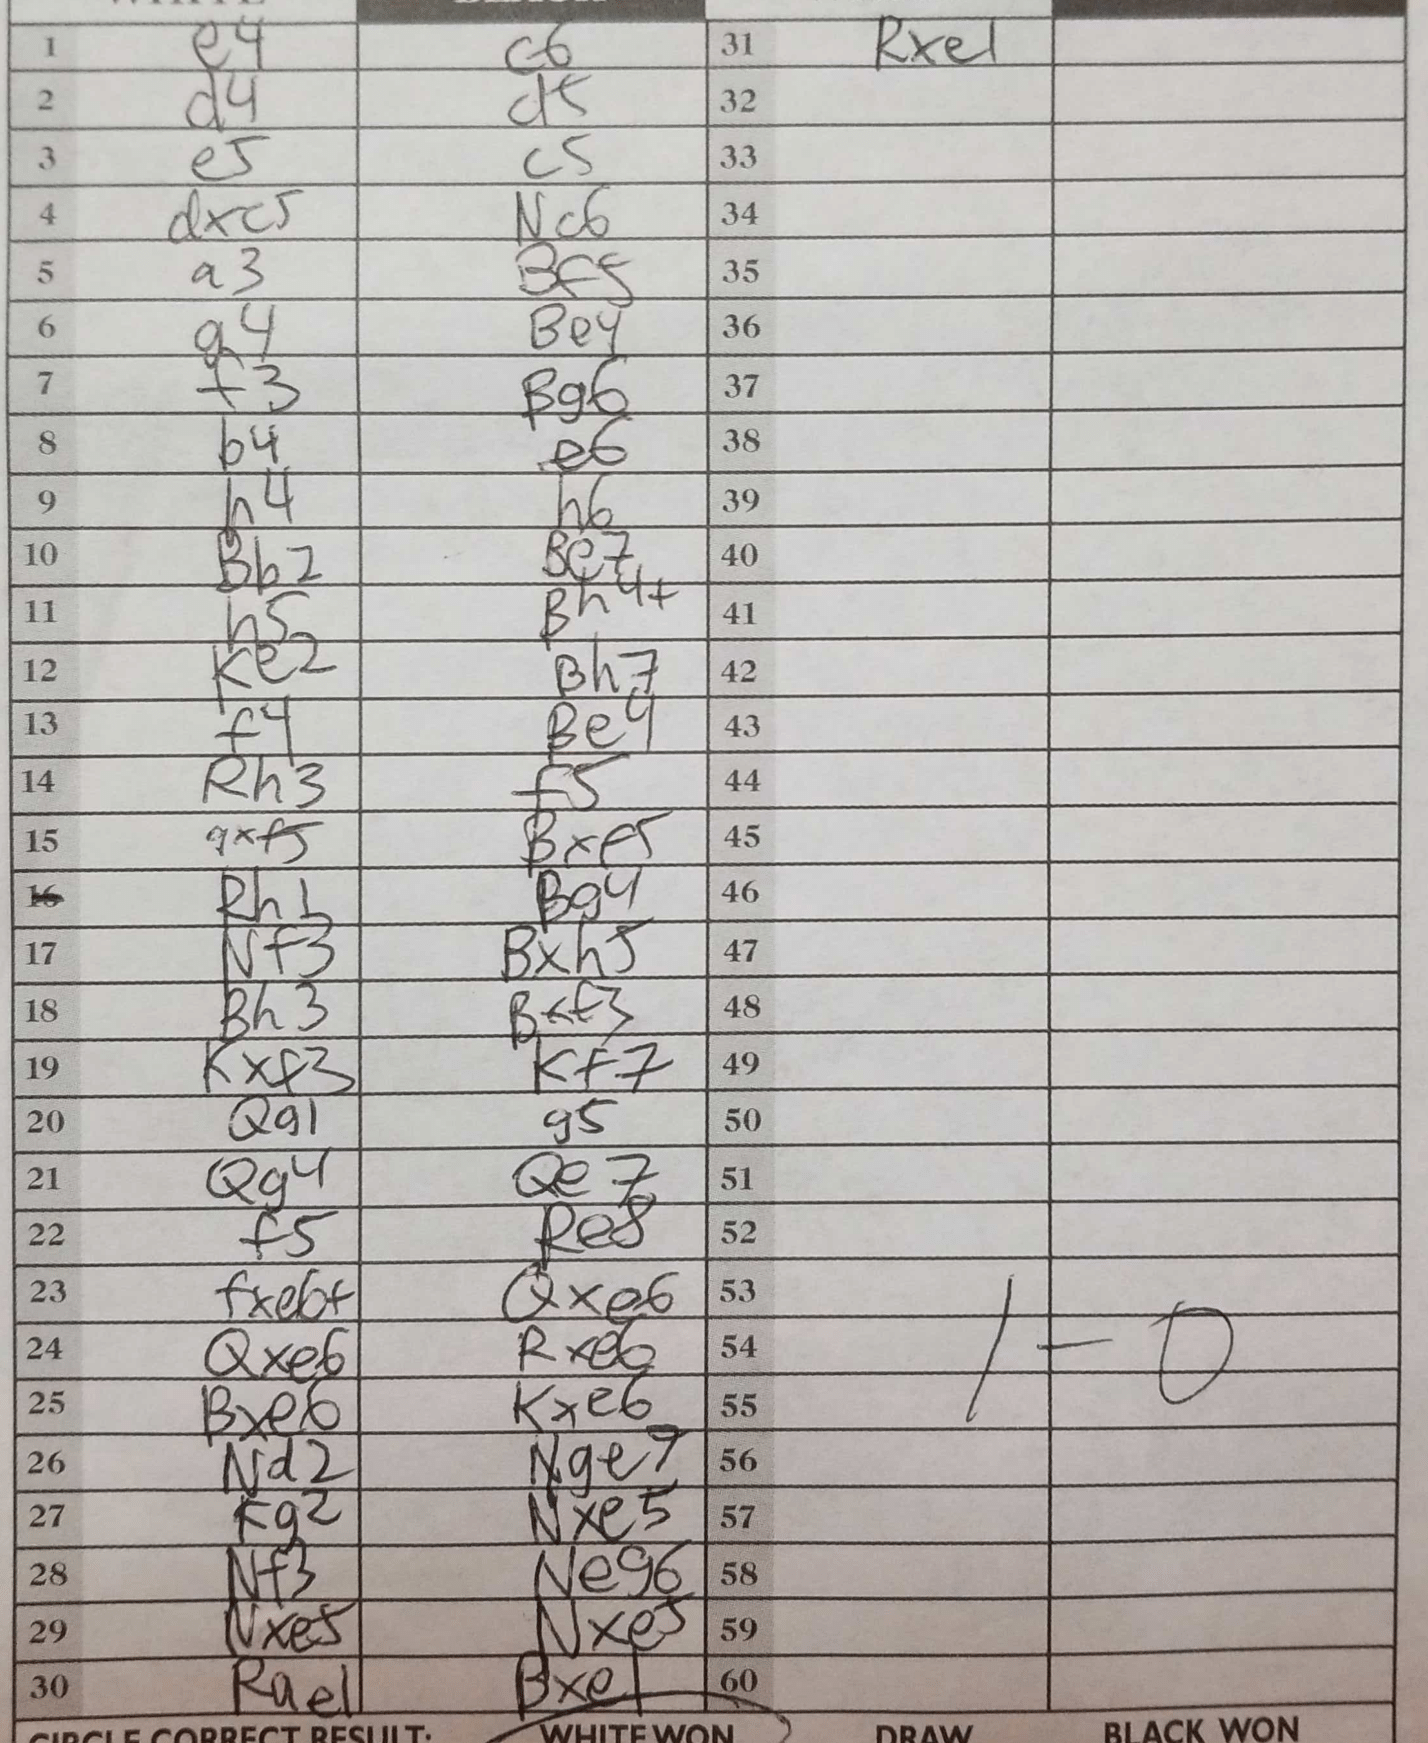 1 e4 c6 31 Rxe1
2 d4 d5 32
3 e5 c5 33
4 dxc5 Nc6 34
5 a3 Bf5 35
6 g4 Be4 36
7 f3 Bg6 37
8 b4 e6 38
9 h4 h6 39
10 Bb2 Be7 40
11 h5 Bh4+ 41
12 Ke2 Bh7 42
13 f4 Be4 43
14 Rh3 f5 44
15 gxf5 Bxf5 45
16 Rh1 Bg4 46
17 Nf3 Bxh5 47
18 Bh3 Bxf3 48
19 Kxf3 Kf7 49
20 Qg1 g5 50
21 Qg4 Qe7 51
22 f5 Re8 52
23 fxe6+ Qxe6 53
24 Qxe6 Rxe6 54
1-0
25 Bxe6 Kxe6 55
26 Nd2 Nge7 56
27 Kg2 Nxe5 57
28 Nf3 Neg6 58
29 Nxe5 Nxe5 59
30 Rae1 Bxe1 60
CIRCLE CORRECT RESULT: WHITE WON DRAW BLACK WON